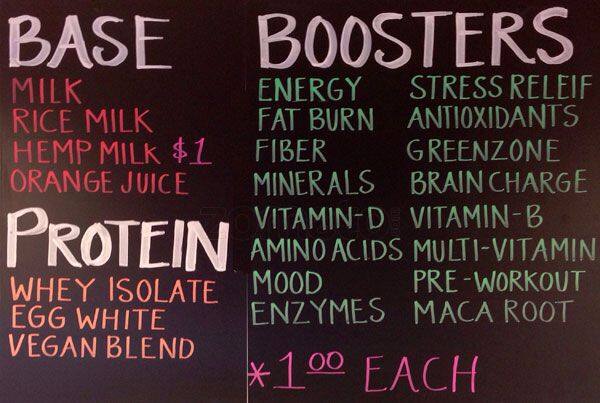 BASE
MILK
RICE MILK
HEMP MILK $1
ORANGE JUICE
PROTEIN
WHEY ISOLATE
EGG WHITE
VEGAN BLEND
BOOSTERS
ENERGY
FAT BURN
FIBER
MINERALS
VITAMIN-D
AMINO ACIDS
MOOD
ENZYMES
STRESS RELEIF
ANTIOXIDANTS
GREENZONE
BRAIN CHARGE
VITAMIN-B
MULTI-VITAMIN
PRE-WORKOUT
MACA ROOT
*1.00 EACH